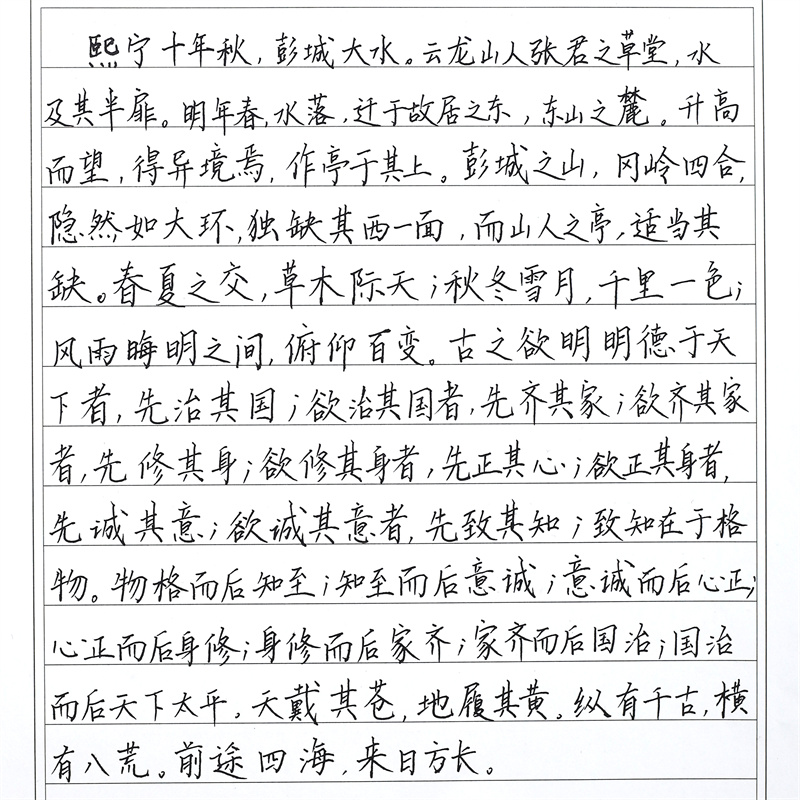 熙宁十年秋，彭城大水。云龙山人张君之草堂，水
及其半扉。明年春，水落，迁于故居之东，东山之麓。升高
而望，得异境焉，作亭于其上。彭城之山，冈岭四合，
隐然如大环，独缺其西一面，而山人之亭，适当其
缺。春夏之交，草木际天；秋冬雪月，千里一色；
风雨晦明之间，俯仰百变。古之欲明明德于天
下者，先治其国；欲治其国者，先齐其家；欲齐其家
者，先修其身；欲修其身者，先正其心；欲正其身者，
先诚其意；欲诚其意者，先致其知；致知在于格
物。物格而后知至；知至而后意诚；意诚而后心正；
心正而后身修；身修而后家齐；家齐而后国治；国治
而后天下太平。天戴其苍，地履其黄。纵有千古，横
有八荒。前途四海，来日方长。